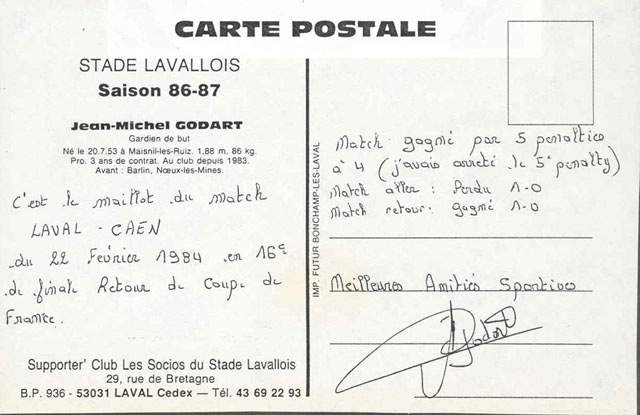 CARTE POSTALE
STADE LAVALLOIS
Saison 86-87
Jean-Michel GODART
Gardien de but
Né le 20.7.53 à Maisnil-les-Ruiz. 1,88 m, 86 kg.
Pro. 3 ans de contrat. Au club depuis 1983.
Avant : Barlin, Nœux-les-Mines.
C'est le maillot du match
LAVAL - CAEN
du 22 Février 1984 en 16e
de finale Retour de Coupe de
France.
Supporter' Club Les Socios du Stade Lavallois
29, rue de Bretagne
B.P. 936 - 53031 LAVAL Cedex — Tél. 43 69 22 93
IMP. FUTUR BONCHAMP-LES-LAVAL
Match gagné par 5 penalties
à 4 (j'avais arreté le 5e penalty)
Match aller : Perdu 1-0
Match retour : gagné 1-0
Meilleures Amitiés Sportives
Godart